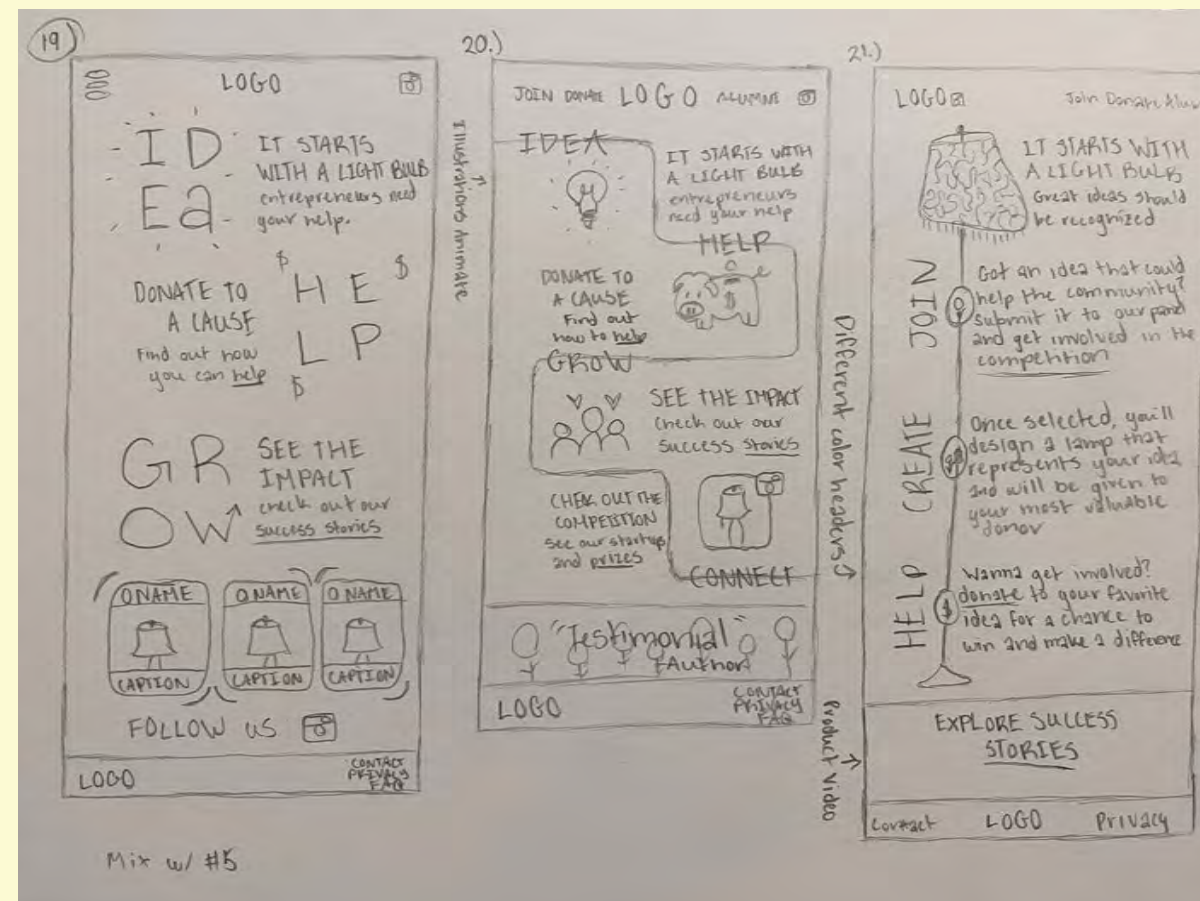 19
LOGO
I D
Ea
IT STARTS
WITH A LIGHT BULB
entrepreneurs need
your help.
DONATE TO
A CAUSE
Find out how
you can help
$ $
H E
L P
$
G R
OW
SEE THE
IMPACT
check out our
success stories
NAME
CAPTION
NAME
CAPTION
NAME
CAPTION
FOLLOW US
LOGO
CONTACT
PRIVACY
FAQ
Mix w/ #5
Illustrations Animate
20.)
JOIN DONATE LOGO ALUMNI
IDEA
IT STARTS WITH
A LIGHT BULB
entrepreneurs
need your help
HELP
DONATE TO
A CAUSE
Find out
how to help
$
GROW
SEE THE IMPACT
check out our
success stories
CHECK OUT THE
COMPETITION
see our startups
and prizes
CONNECT
"Testimonial"
Author
LOGO
CONTACT
PRIVACY
FAQ
Different color headers
Product video
21.)
LOGO
Join Donate Alu
IT STARTS WITH
A LIGHT BULB
Great ideas should
be recognized
JOIN
Got an idea that could
help the community?
submit it to our panel
and get involved in the
competition
CREATE
Once selected, you'll
design a lamp that
represents your idea
and will be given to
your most valuable
donor
HELP
$
Wanna get involved?
donate to your favorite
idea for a chance to
win and make a difference
EXPLORE SUCCESS
STORIES
Contact LOGO Privacy